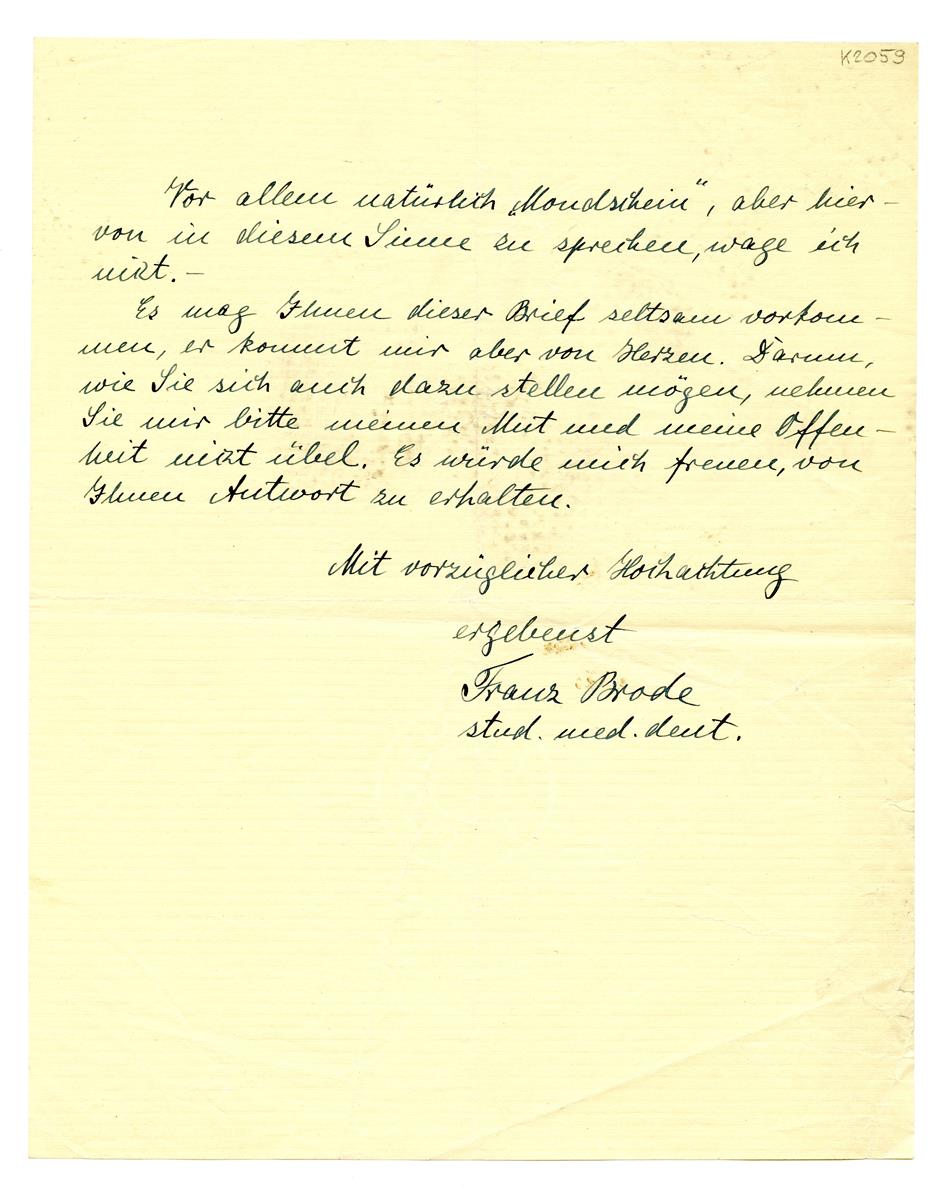 K2059
Vor allem natürlich „Mondschein“, aber hier-
von in diesem Sinne zu sprechen, wage ich
nicht. –
Es mag Ihnen dieser Brief seltsam vorkom-
men, er kommt mir aber von Herzen. Darum,
wie Sie sich auch dazu stellen mögen, nehmen
Sie mir bitte meinen Mut und meine Offen-
heit nicht übel. Es würde mich freuen, von
Ihnen Antwort zu erhalten.
Mit vorzüglicher Hochachtung
ergebenst
Franz Brode
stud. med. dent.